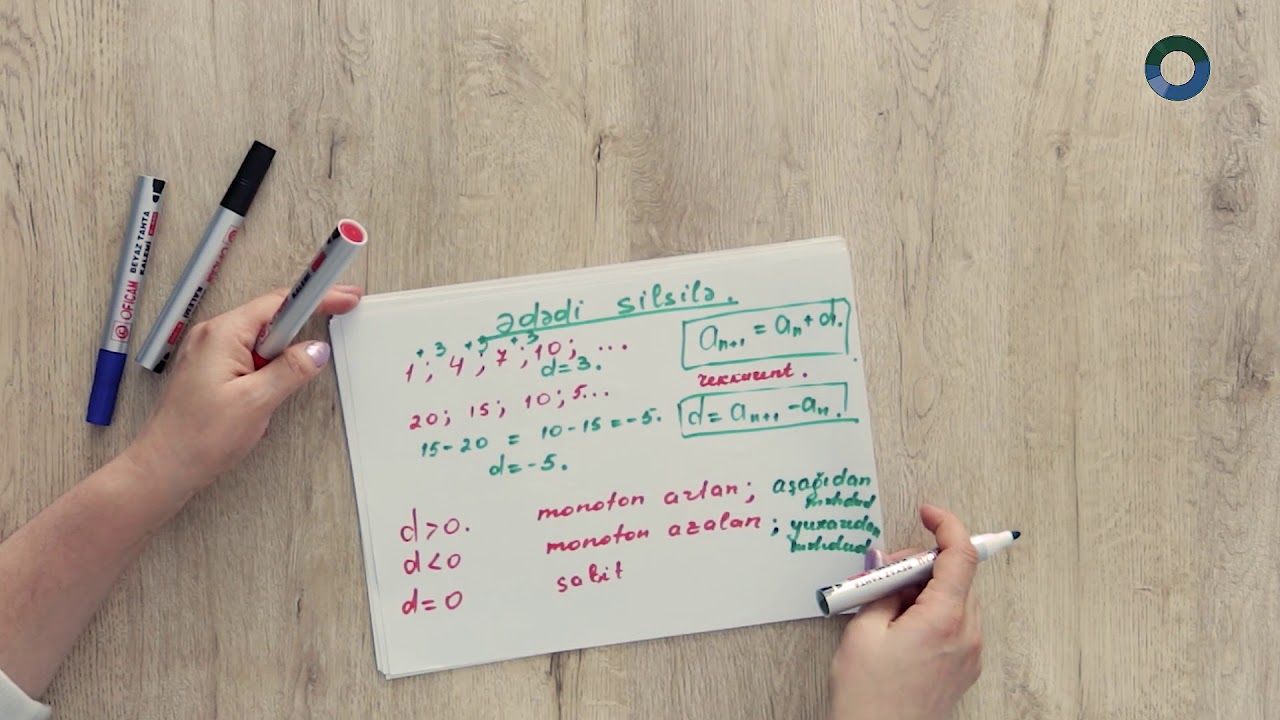 ədədi silsilə.
+3 +3 +3
1; 4; 7; 10; ...
d=3.
aₙ₊₁ = aₙ + d.
rekkurent.
20; 15; 10; 5...
d = aₙ₊₁ - aₙ.
15-20 = 10-15 = -5.
d=-5.
d>0. monoton artan; aşağıdan
məhdud
d<0 monoton azalan; yuxarıdan
məhdud
d=0 sabit
OFICAM BEYAZ TAHTA
KALEMİ